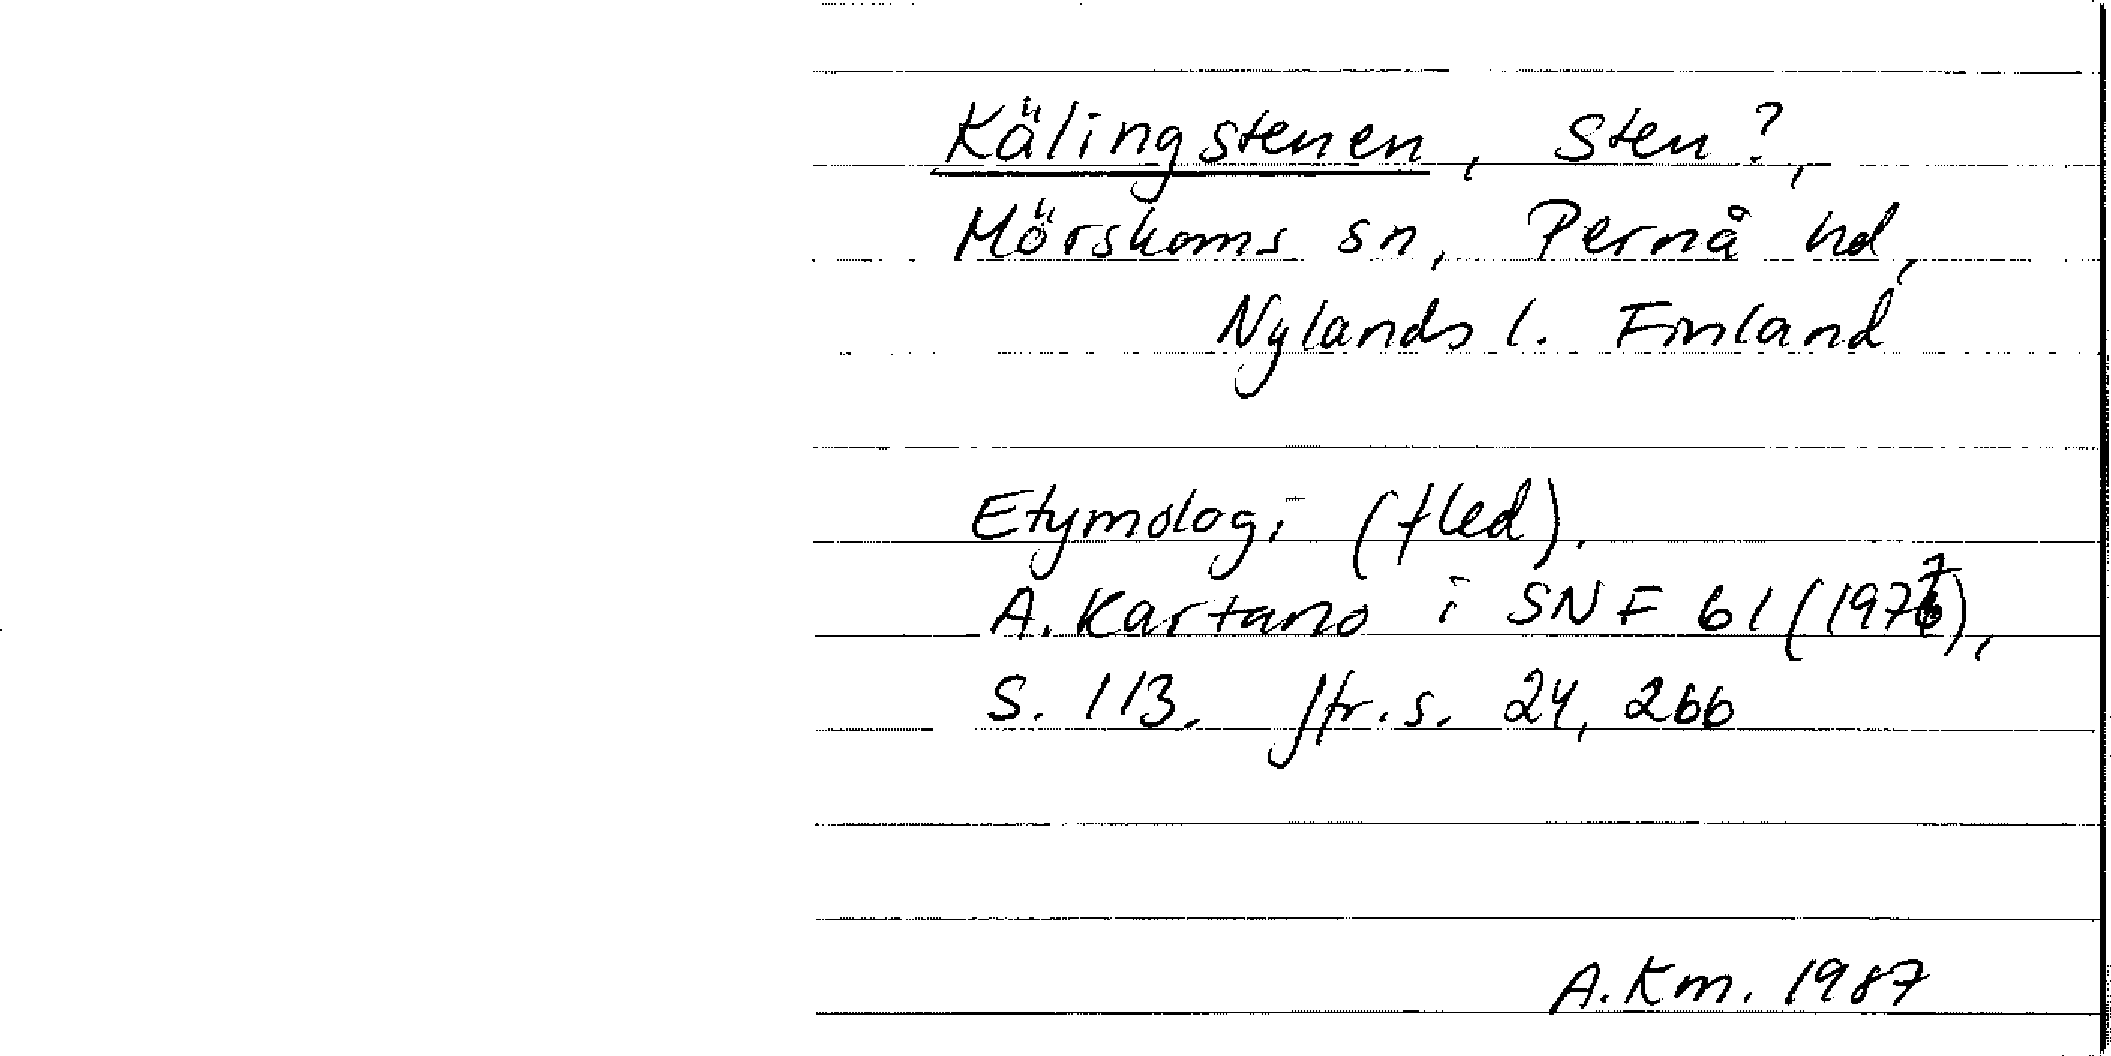 Kälingstenen, Sten?,
Mörskoms sn, Pernå hd,
Nylands l. Finland
Etymologi (fled).
A. Kartano i SNF 61 (1977),
S. 113. Jfr. s. 24, 266
A. Km. 1987